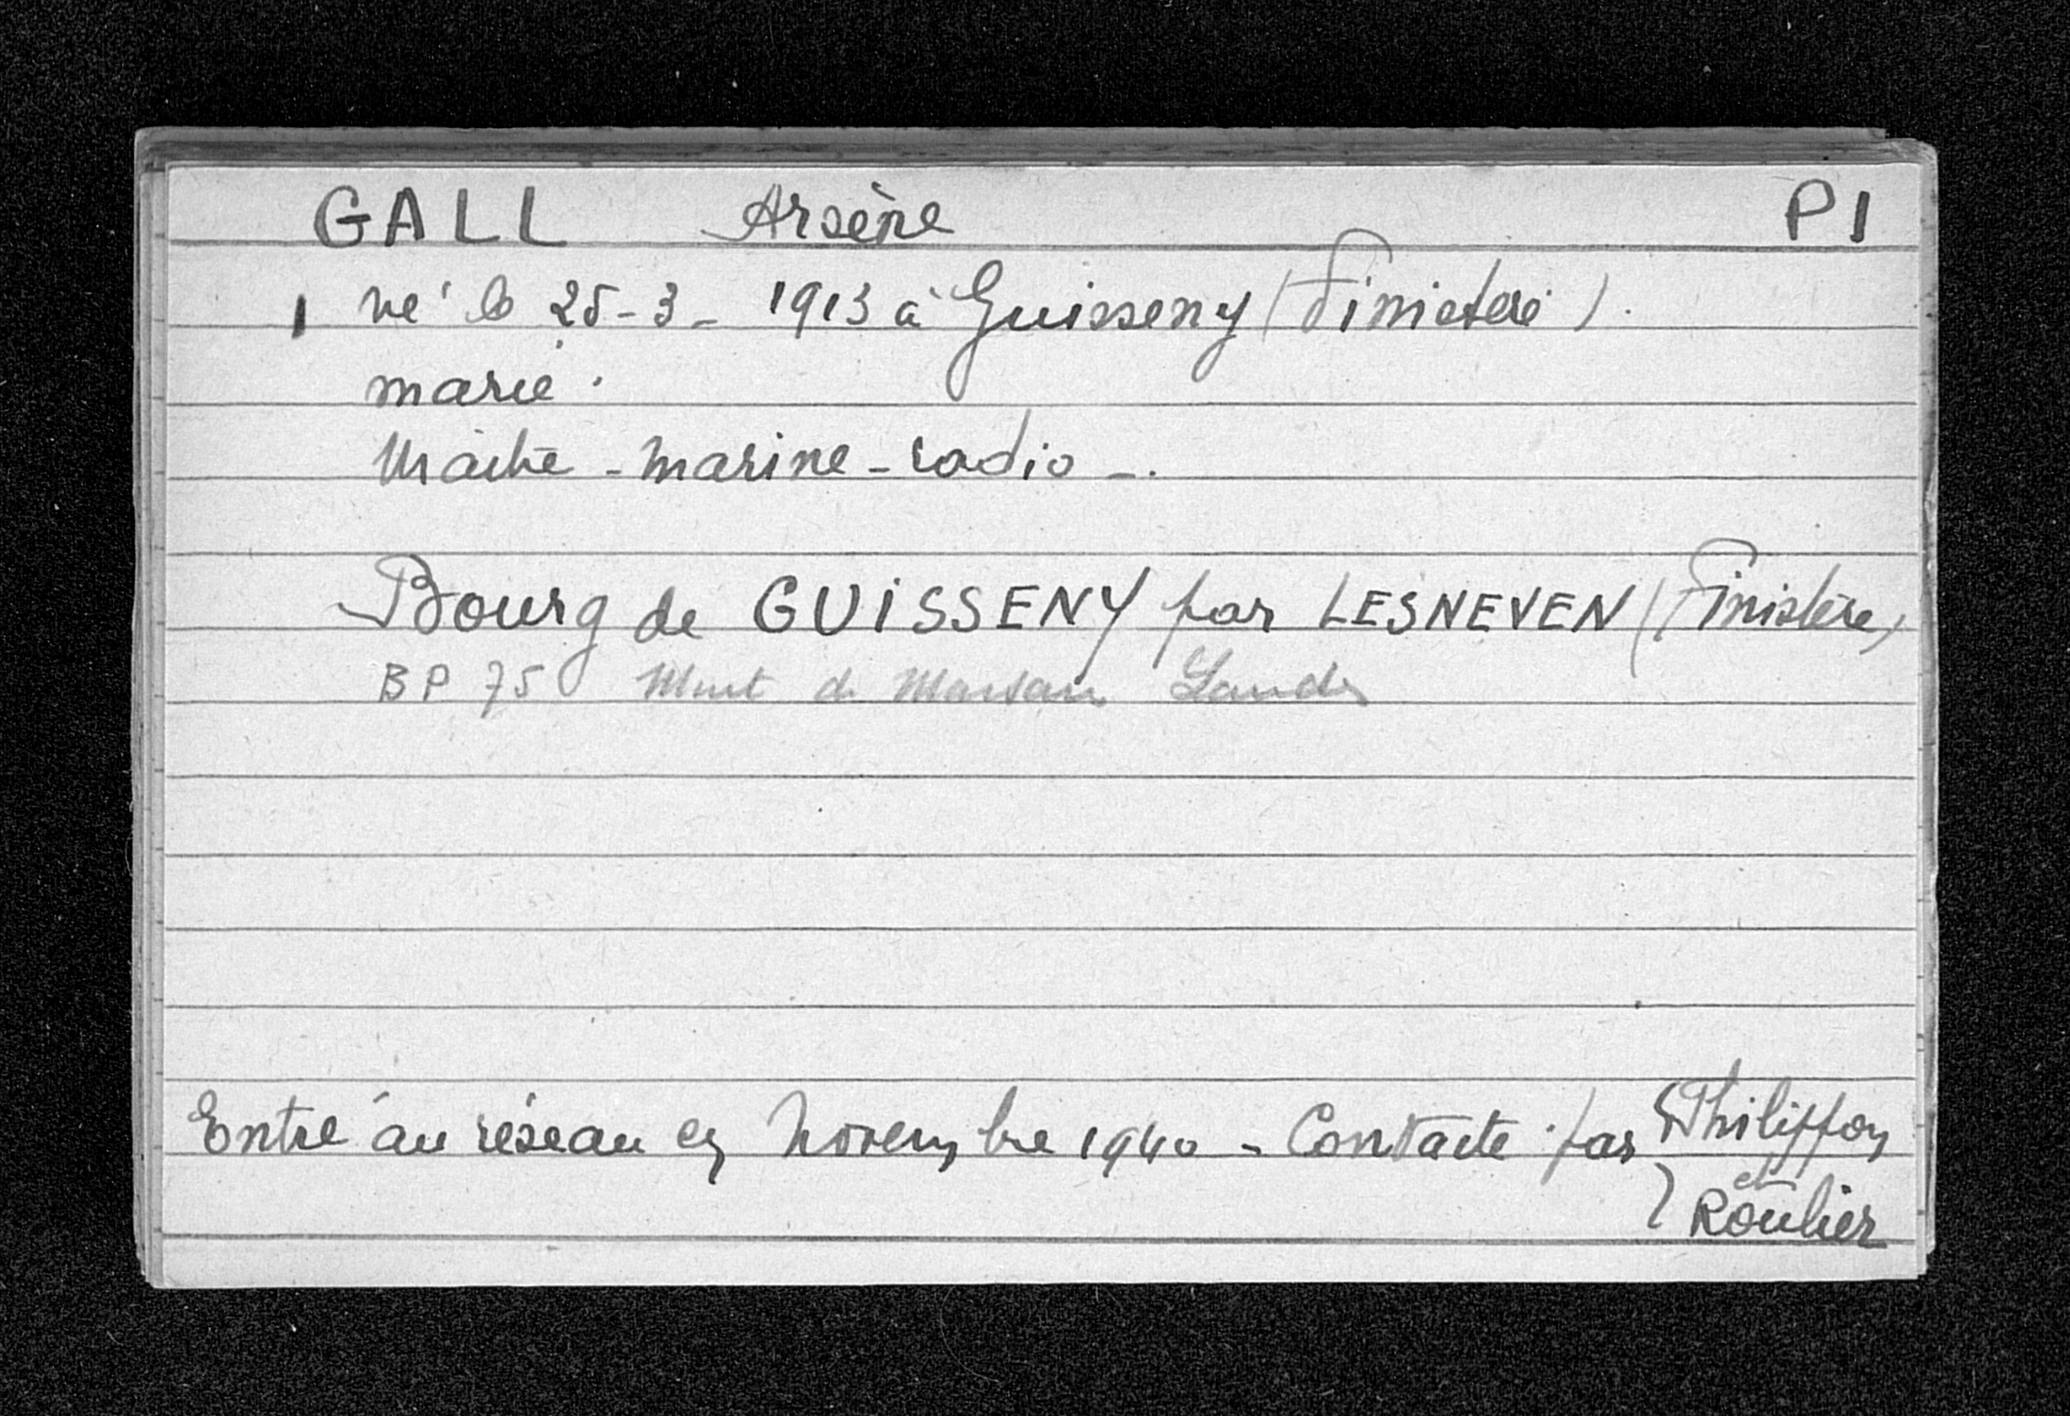 GALL Arsène P1
1 né le 25-3- 1913 à Guisseny (Finistère).
marié.
Maître - marine - radio -.
Bourg de GUISSENY par LESNEVEN (Finistère)
BP 75 Mont de Marsan Landes
Entré au réseau en Novembre 1940 - Contacté par { Philippon
et
Roulier